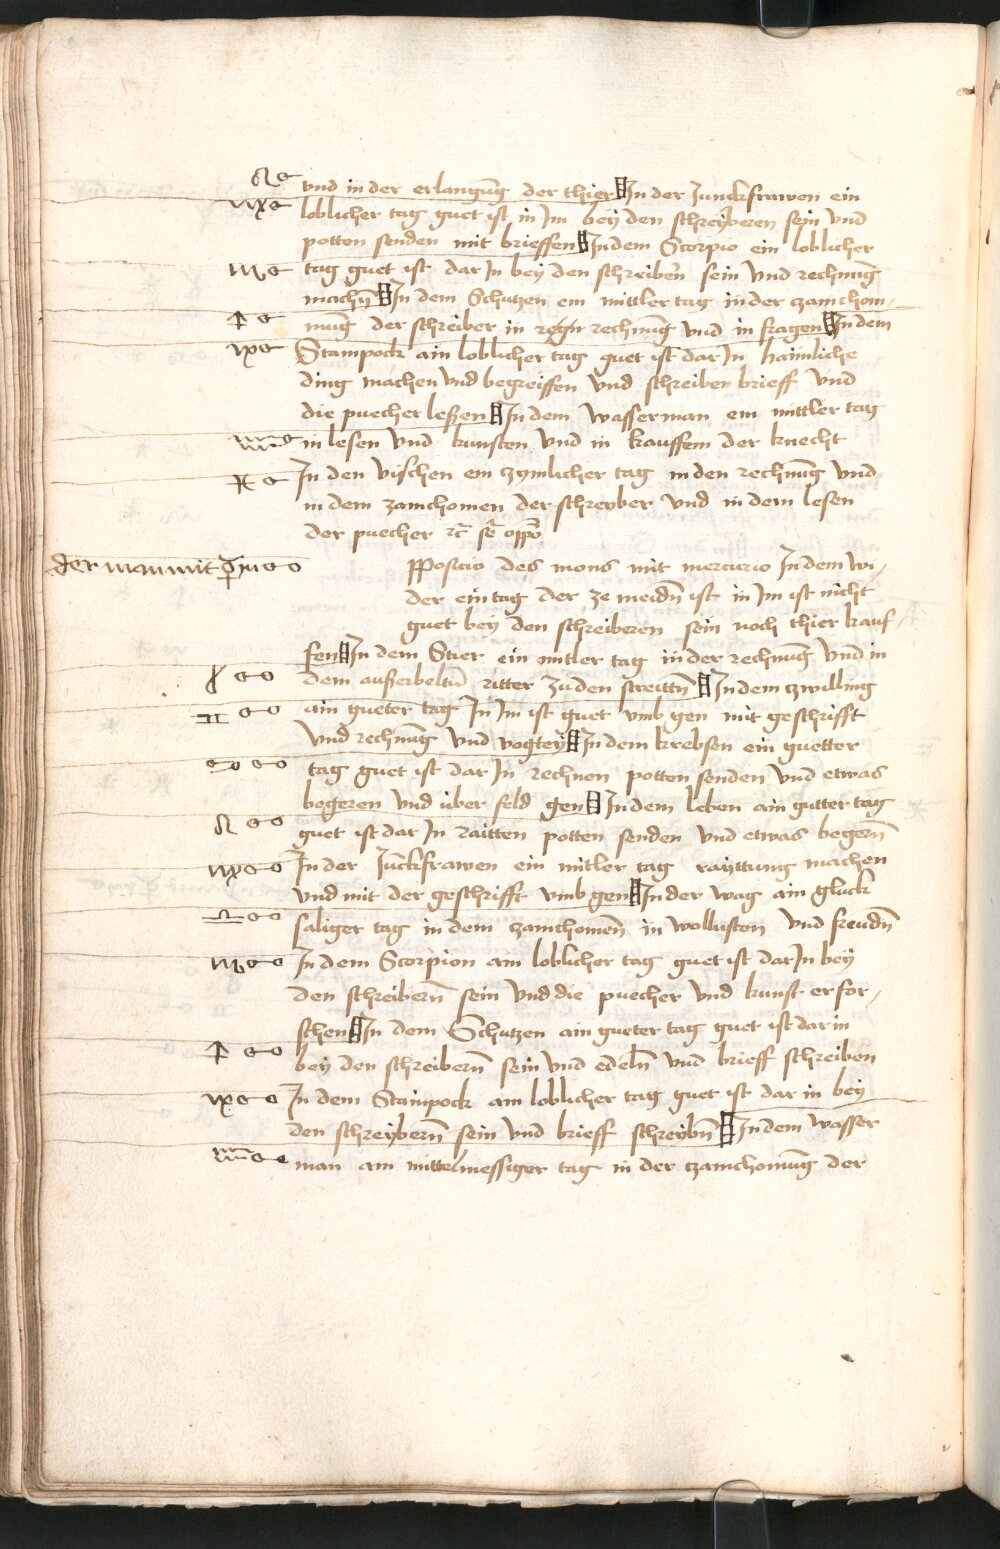 vnd in der erlangūg der thier In der Junckfrawen ein
loblicher tag guet ist in Im bey den schreyberen sein vnd
potten senden mit brieffen In dem Scorpio ein loblicher
tag guet ist dar In bey den schreiben sein vnd rechnūg
machn̄ In dem Schutzen ein mittler tag in der zamchom-
mūg der schreiber in regn rechnūg vnd in fragen In dem
Stainpock ain loblicher tag guet ist dar In haimliche
ding machen vnd begreiffen vnd schreiben brieff vnd
die puecher leßen In dem wasserman ein mittler tag
in lesen vnd kunsten vnd in kauffem der knecht
In den vischen ein zymlicher tag in den rechnūg vnd
in dem zamchomen der schreyber vnd in dem lesen
der puecher
der man mit
ppositio des mons mit mercurio In dem wi-
der ein tag der ze meidn̄ ist in Im ist nicht
guet bey den schreiberen sein noch thier kauf-
fen In dem Stier ein mitler tag in der rechnūg vnd in
dem außerbeltn̄ ritter zu den streittn̄ In dem zwilling
ain gueter tag In Im ist guet vmb gen mit geschrifft
vnd rechnūg vnd vogtey In dem krebsen ein guetter
tag guet ist dar In rechnen potten senden vnd etwas
begeren vnd über feld gen In dem leben ain gutter tag
guet ist dar In raitten potten senden vnd etwas begern̄
In der Jūckfrawen ein mitler tag rayttung machen
vnd mit der geschrifft vmb gen In der wag ain gluck
saliger tag in dem zamchomen̄ in wollusten vnd freudn̄
In dem Scorpion ain loblicher tag guet ist dar In bey
den schreibern̄ sein vnd die puecher vnd kunst erfor-
schen In dem Schutzen ain gueter tag guet ist dar in
bey den schreibern̄ sein vnd edeln̄ vnd brieff schreiben
In dem Stainpock ain loblicher tag guet ist dar in bey
den schreybern̄ sein vnd brieff schreybn̄ In dem wasser
man ain mittelmessiger tag in der zamchomūg der